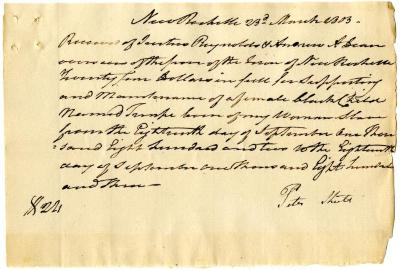 New Rochelle 23d March 1803.
Received of Justus Reynolds & Andrew A Dean
overseers of the poor of the Town of New Rochelle
Twenty four Dollars in full for Supporting
and Maintenance of a female Black Child
Named born of my Woman Slave
from the Eighteenth day of September One thou
sand Eight hundred and two to the Eighteenth
day of September one thousand Eight hundred
and three —
$24 Peter